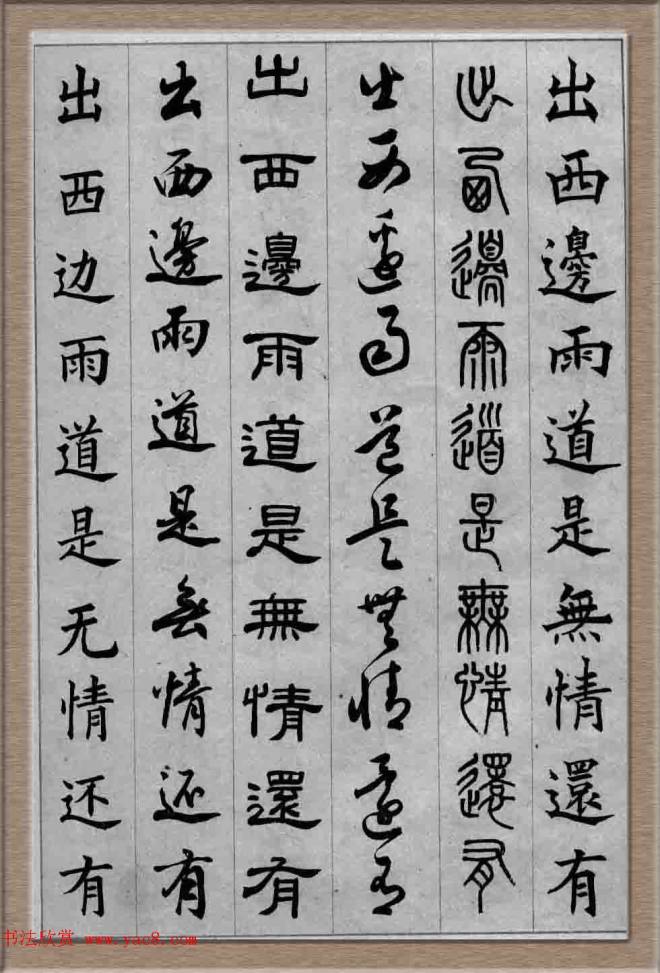 出西邊雨道是無情還有
出西邊雨道是無情還有
出西邊雨道是無情還有
出西邊雨道是無情還有
出西邊雨道是無情还有
出西边雨道是无情还有
书法欣赏 www.yac8.com